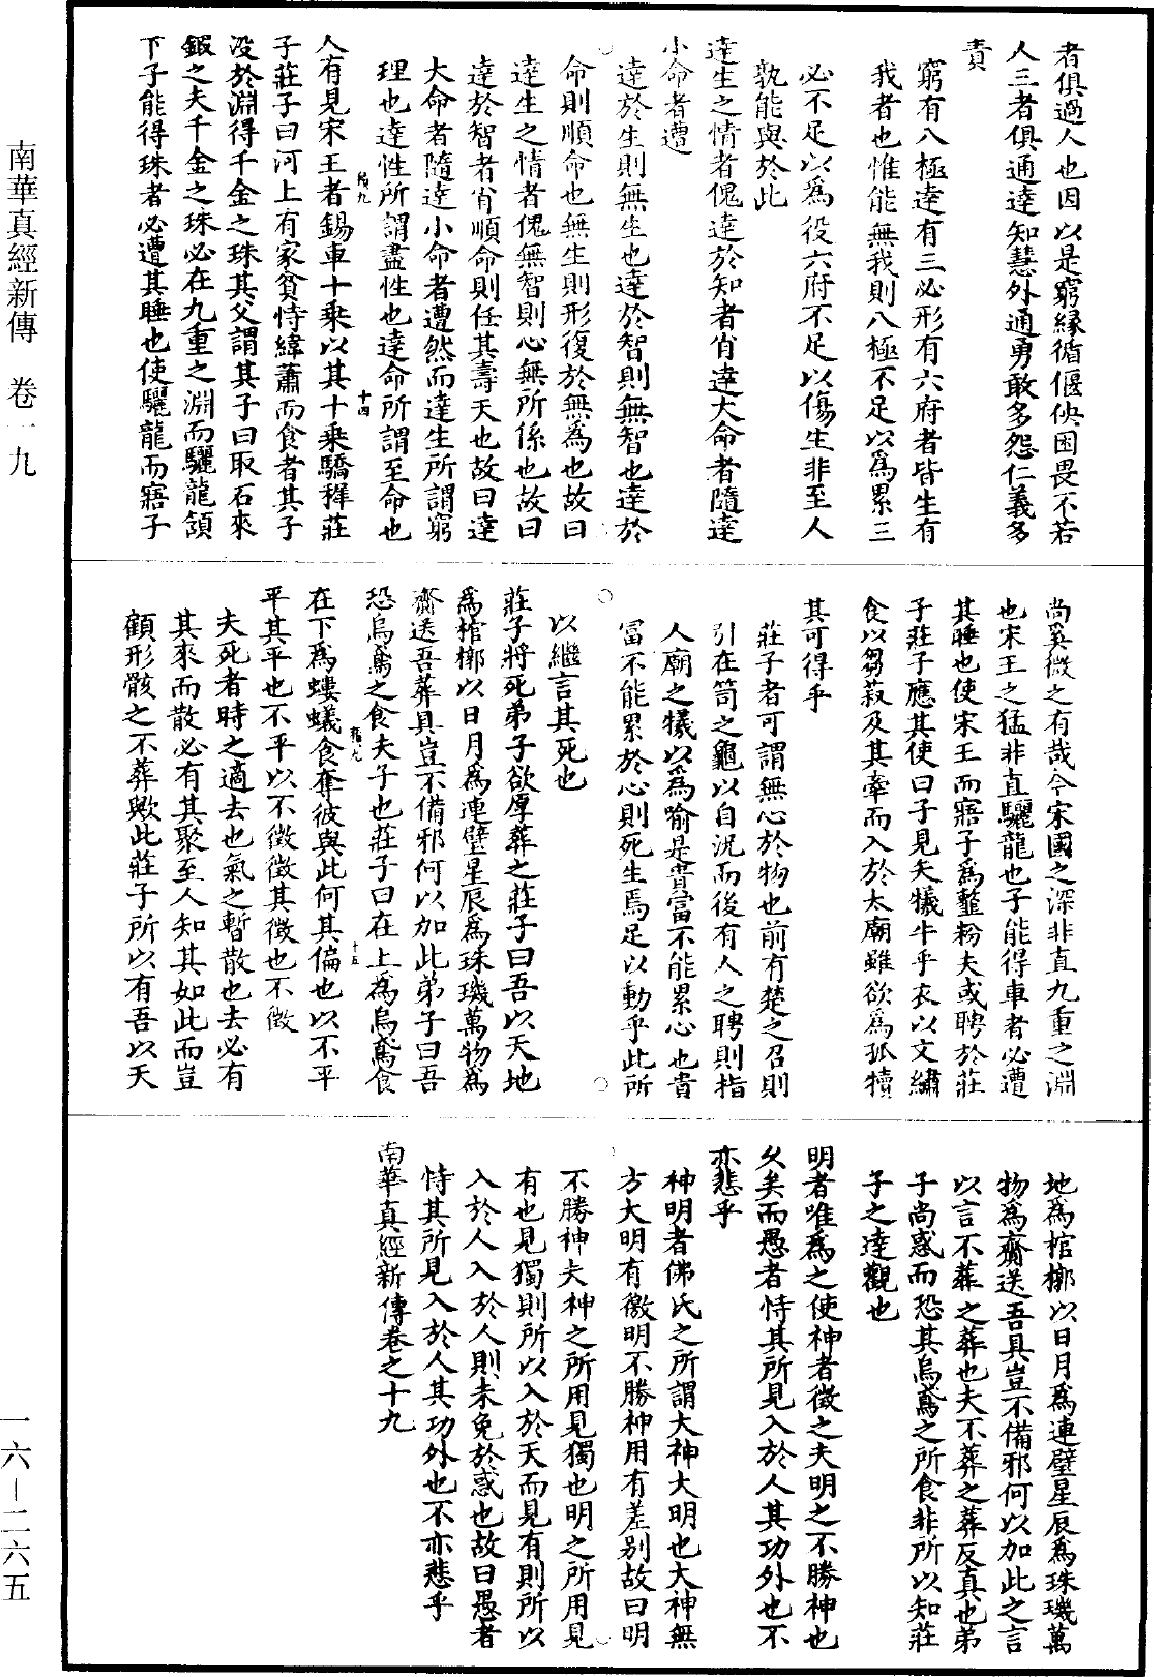 者俱過人也因以是窮緣循偃佒困畏不若
人三者俱通達知慧外通勇敢多怨仁義多
責
窮有八極達有三必形有六府者皆生有
我者也惟能無我則八極不足以爲累三
必不足以爲役六府不足以傷生非至人
孰能與於此
達生之情者傀達於知者肖達大命者隨達
小命者遭
達於生則無生也達於智則無智也達於
命則順命也無生則形復於無爲也故曰
達生之情者傀無智則心無所係也故曰
達於智者肖順命則任其壽夭也故曰達
大命者隨達小命者遭然而達生所謂窮
理也達性所謂盡性也達命所謂至命也
人有見宋王者錫車十乘以其十乘驕穉莊
子莊子曰河上有家貧恃緯蕭而食者其子
没於淵得千金之珠其父謂其子曰取石來
鍛之夫千金之珠必在九重之淵而驪龍頷
下子能得珠者必遭其睡也使驪龍而寤子
尚奚微之有哉今宋國之深非直九重之淵
也宋王之猛非直驪龍也子能得車者必遭
其睡也使宋王而寤子爲虀粉夫或聘於莊
子莊子應其使曰子見夫犧牛乎衣以文繡
食以芻菽及其牽而入於太廟雖欲爲孤犢
其可得乎
莊子者可謂無心於物也前有楚之召則
引在笥之龜以自況而後有人之聘則指
人廟之犧以爲喻是貴富不能累心也貴
富不能累於心則死生焉足以動乎此所
以繼言其死也
莊子將死弟子欲厚葬之莊子曰吾以天地
爲棺槨以日月爲連璧星辰爲珠璣萬物爲
齎送吾葬具豈不備邪何以加此弟子曰吾
恐烏鳶之食夫子也莊子曰在上爲烏鳶食
在下爲螻蟻食奪彼與此何其偏也以不平
平其平也不平以不徵徵其徵也不徵
夫死者時之適去也氣之暫散也去必有
其來而散必有其聚至人知其如此而豈
顧形骸之不葬歟此莊子所以有吾以天
地爲棺槨以日月爲連璧星辰爲珠璣萬
物爲齎送吾具豈不備邪何以加此之言
以言不葬之葬也夫不葬之葬反真也弟
子尚惑而恐其烏鳶之所食非所以知莊
子之達觀也
明者唯爲之使神者徵之夫明之不勝神也
久矣而愚者恃其所見入於人其功外也不
亦悲乎
神明者佛氏之所謂大神大明也大神無
方大明有徼明不勝神用有差别故曰明
不勝神夫神之所用見獨也明之所用見
有也見獨則所以入於天而見有則所以
入於人入於人則未免於惑也故曰愚者
恃其所見入於人其功外也不亦悲乎
南華真經新傳卷之十九
南華真經新傳 卷一九
一六—二六五